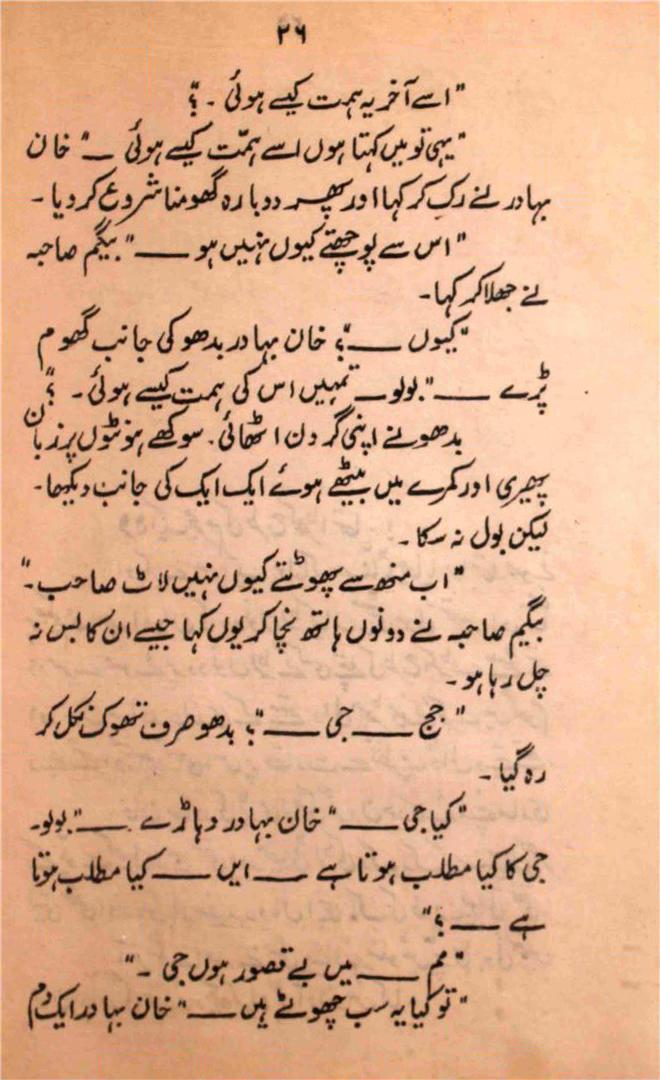 ۲۶
"اسے آخر یہ ہمت کیسے ہوئی ۔؟"
"یہی تو میں کہتا ہوں اسے ہمّت کیسے ہوئی ــــ" خان
بہادر نے رک کر کہا اور پھر دوبارہ گھومنا شروع کر دیا۔
"اس سے پوچھتے کیوں نہیں ہو ــــ" بیگم صاحبہ
نے جھلا کر کہا۔
"کیوں ــــ؟" خان بہادر بدھو کی جانب گھوم
پڑے ــــ "بولو ــــ تمہیں اس کی ہمت کیسے ہوئی ۔؟"
بدھو نے اپنی گردن اٹھائی۔ سوکھے ہونٹوں پر زبان
پھیری اور کمرے میں بیٹھے ہوئے ایک ایک کی جانب دیکھا۔
لیکن بول نہ سکا۔
"اب منھ سے پھوٹتے کیوں نہیں لاٹ صاحب۔"
بیگم صاحبہ نے دونوں ہاتھ نچا کر یوں کہا جیسے ان کا بس نہ
چل رہا ہو۔
"جج ــــ جی ــــ"؛ بدھو صرف تھوک نگل کر
رہ گیا۔
"کیا جی ــــ" خان بہادر دہاڑے ــــ "بولو۔
جی کا کیا مطلب ہوتا ہے ــــ ایں ــــ کیا مطلب ہوتا
ہے ــــ؟"
"مم ــــ میں بے قصور ہوں جی ۔"
"تو کیا یہ سب جھوٹے ہیں ــــ" خان بہادر ایک دم